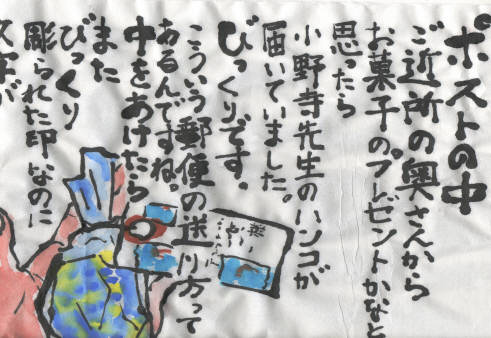 ポストの中
ご近所の奥さんから
お菓子のプレゼントかなと
思ったら
小野寺先生のハンコが
届いていました。
びっくりです。
こういう郵便の送り方って
あるんですね。
中をあけたら
また
びっくり
彫られた印なのに